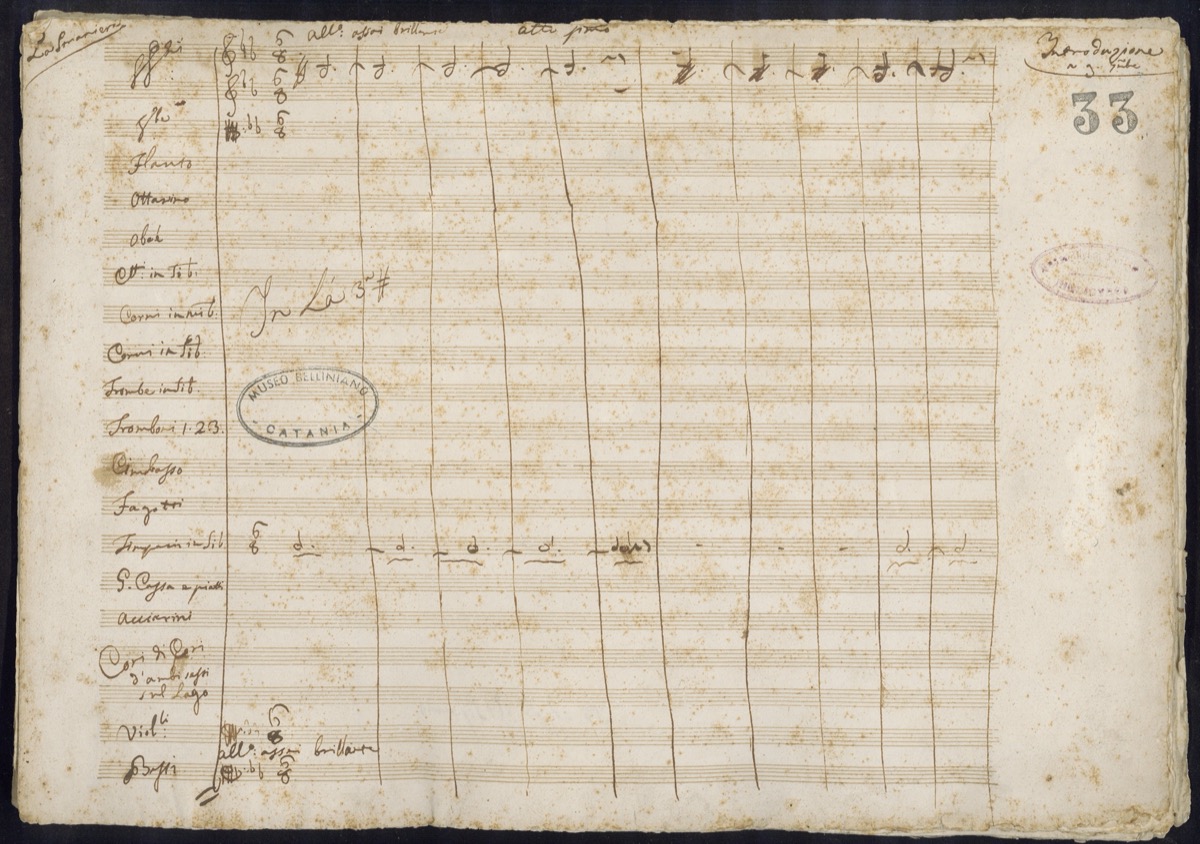 La Straniera
all.º assai brillante
atto primo
Introduzione
33
Flauto
Ottavino
Oboè
in Sib.
In La 3.ª #
Corni in mib.
Corni in Sib
Trombe in Sib.
MUSEO BELLINIANO
- CATANIA -
Tromboni 1. 2. 3.
Cimbasso
Fagotti
Timpani in Sib
G. Cassa e piatti
Acciarini
Cori di Cori
d'ambi sessi
sul Lago
Viol.lli
all.º assai brillante
Bassi